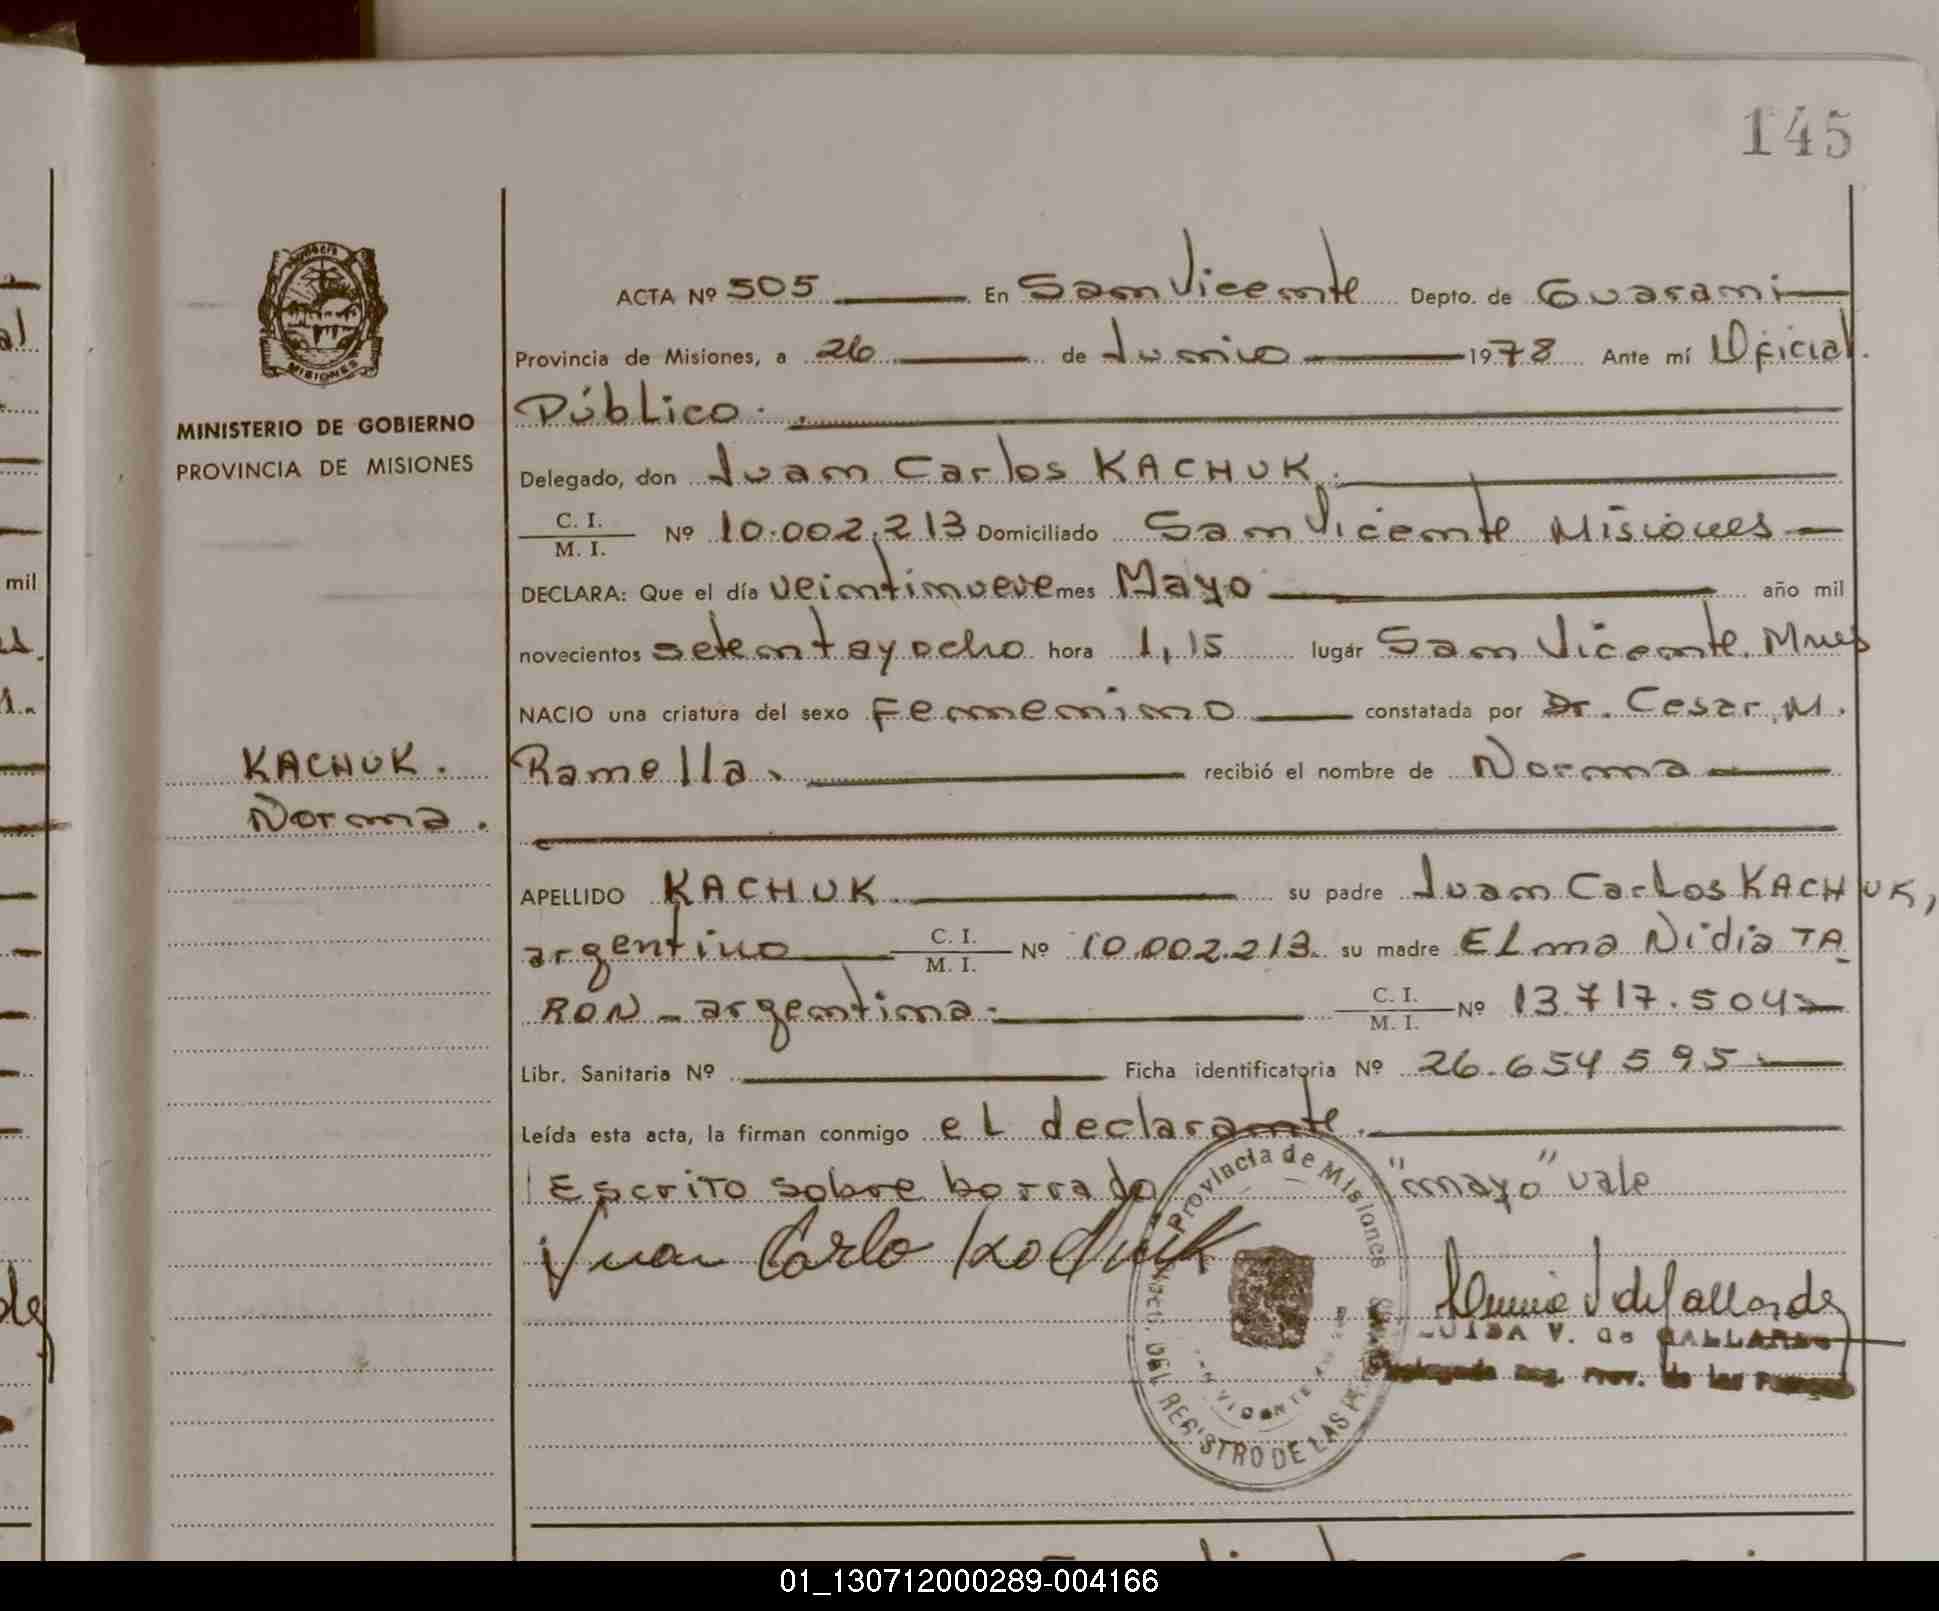 145
ACTA Nº 505 En San Vicente Depto. de Guarani
Provincia de Misiones, a 26 de Junio 1978 Ante mí Oficial
Público.
MISIONES
MINISTERIO DE GOBIERNO
PROVINCIA DE MISIONES
Delegado, don Juan Carlos KACHUK.
C. I.
M. I. Nº 10.002.213 Domiciliado San Vicente Misiones
DECLARA: Que el día veintinueve mes Mayo año mil
novecientos setentayocho hora 1,15 lugar San Vicente. Mnes
NACIO una criatura del sexo femenino constatada por Dr. Cesar M.
Ramella. recibió el nombre de Norma
KACHUK.
Norma.
APELLIDO KACHUK su padre Juan Carlos KACHUK,
argentino C. I. M. I. Nº 10.002.213. su madre ELma Nidia TA
RON - argentina. C. I. M. I. Nº 13.717.504
Libr. Sanitaria Nº Ficha identificatoria Nº 26.654595
Leída esta acta, la firman conmigo eL declarante.
Escrito sobre borrado "mayo" vale
Juan Carlo Kachuk
Provincia de Misiones
DEL REGISTRO DE LAS
V. de GALLARDO
mil